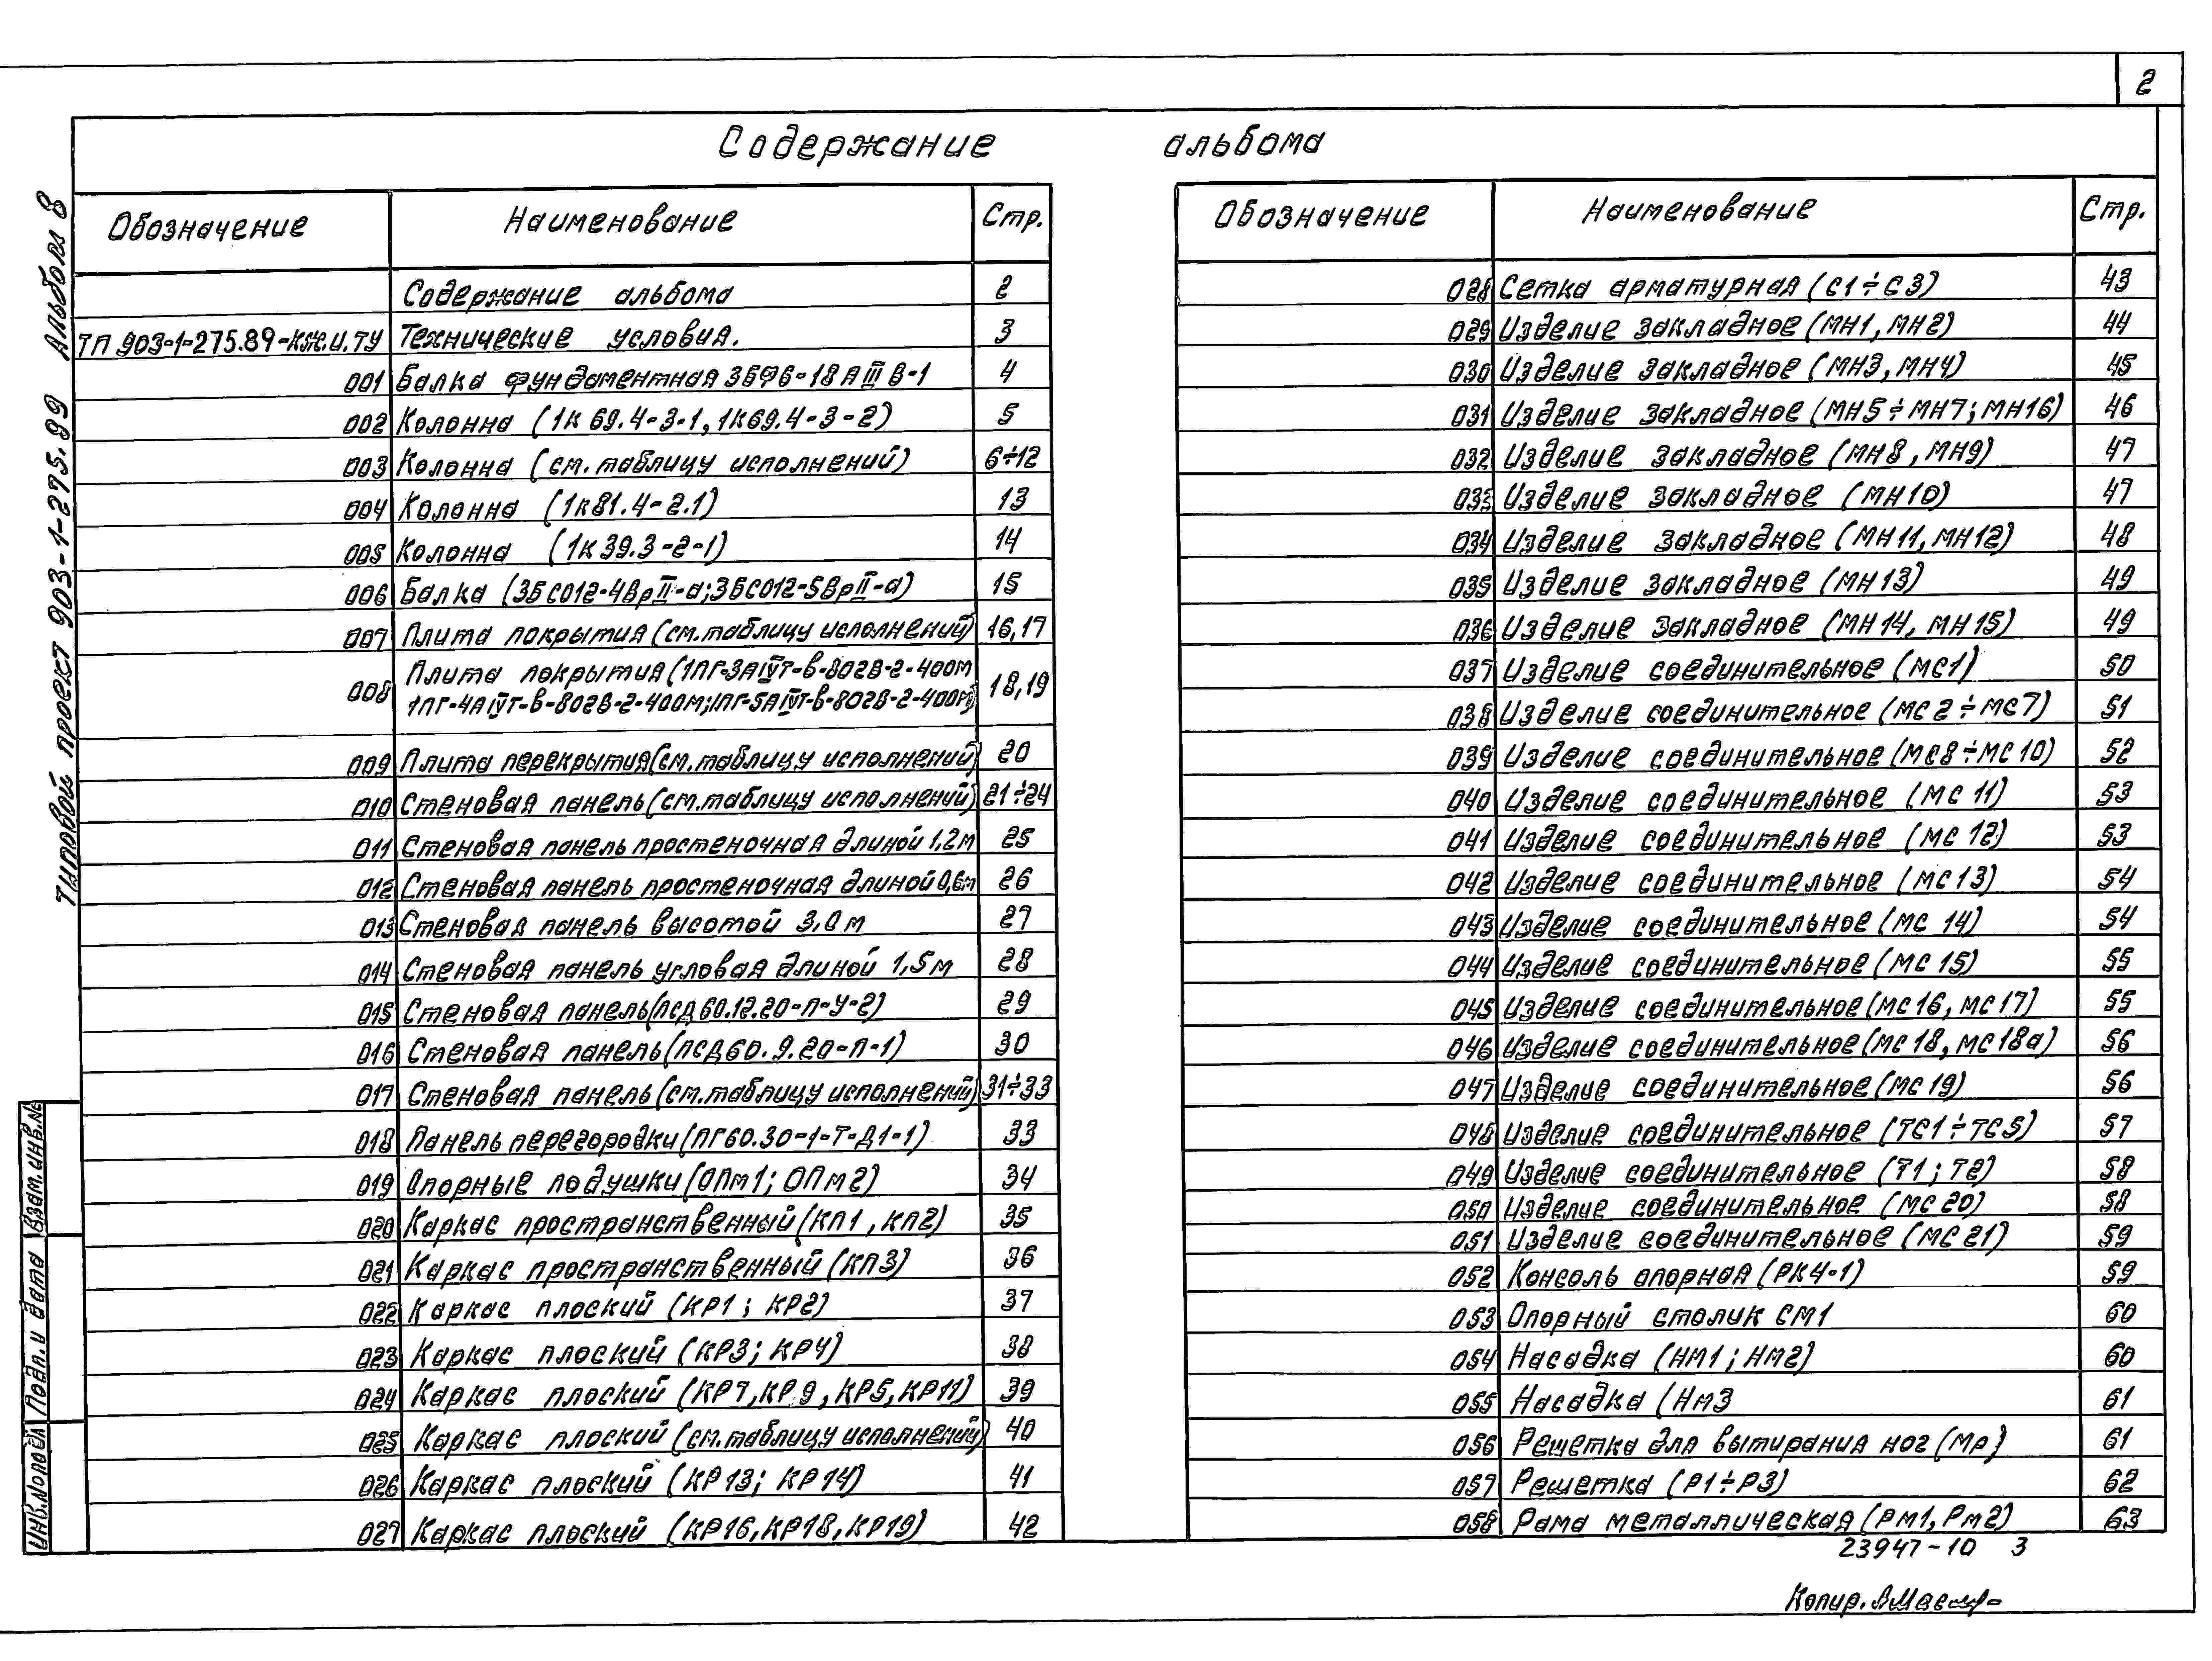 2
Содержание альбома
Типовой проект 903-1-275.99 Альбом 8
Обозначение Наименование Стр.
Содержание альбома 2
ТП 903-1-275.89-КЖ.И.ТУ Технические условия. 3
001 Балка фундаментная 3БФ6-18АIIIв-1 4
002 Колонна (1К69.4-3-1, 1К69.4-3-2) 5
003 Колонна (см. таблицу исполнений) 6÷12
004 Колонна (1К81.4-2.1) 13
005 Колонна (1К39.3-2-1) 14
006 Балка (3БСО12-4ВрII-а; 3БСО12-5ВрII-а) 15
007 Плита покрытия (см. таблицу исполнений) 16,17
008 Плита покрытия (1ПГ-3АIVт-в-802В-2-400м
1ПГ-4АIVт-в-802В-2-400м; 1ПГ-5АIVт-в-802В-2-400м) 18,19
009 Плита перекрытия (см. таблицу исполнений) 20
010 Стеновая панель (см. таблицу исполнений) 21÷24
011 Стеновая панель простеночная длиной 1,2м 25
012 Стеновая панель простеночная длиной 0,6м 26
013 Стеновая панель высотой 3,0м 27
014 Стеновая панель угловая длиной 1,5м 28
015 Стеновая панель (ПСД60.12.20-П-У-2) 29
016 Стеновая панель (ПСД60.9.20-П-1) 30
017 Стеновая панель (см. таблицу исполнений) 31÷33
018 Панель перегородки (ПГ60.30-1-Т-Д1-1) 33
019 Опорные подушки (ОПм1; ОПм2) 34
020 Каркас пространственный (КП1, КП2) 35
021 Каркас пространственный (КП3) 36
022 Каркас плоский (КР1; КР2) 37
023 Каркас плоский (КР3; КР4) 38
024 Каркас плоский (КР7, КР.9, КР5, КР11) 39
025 Каркас плоский (см. таблицу исполнений) 40
026 Каркас плоский (КР13; КР14) 41
027 Каркас плоский (КР16, КР18, КР19) 42
Обозначение Наименование Стр.
028 Сетка арматурная (С1÷С3) 43
029 Изделие закладное (МН1, МН2) 44
030 Изделие закладное (МН3, МН4) 45
031 Изделие закладное (МН5÷МН7; МН16) 46
032 Изделие закладное (МН8, МН9) 47
033 Изделие закладное (МН10) 47
034 Изделие закладное (МН11, МН12) 48
035 Изделие закладное (МН13) 49
036 Изделие закладное (МН14, МН15) 49
037 Изделие соединительное (МС1) 50
038 Изделие соединительное (МС2÷МС7) 51
039 Изделие соединительное (МС8÷МС10) 52
040 Изделие соединительное (МС 11) 53
041 Изделие соединительное (МС 12) 53
042 Изделие соединительное (МС13) 54
043 Изделие соединительное (МС 14) 54
044 Изделие соединительное (МС 15) 55
045 Изделие соединительное (МС16, МС17) 55
046 Изделие соединительное (МС18, МС18а) 56
047 Изделие соединительное (МС19) 56
048 Изделие соединительное (ТС1÷ТС5) 57
049 Изделие соединительное (Т1; Т2) 58
050 Изделие соединительное (МС20) 58
051 Изделие соединительное (МС21) 59
052 Консоль опорная (РК4-1) 59
053 Опорный столик СМ1 60
054 Насадка (НМ1; НМ2) 60
055 Насадка (НМ3 61
056 Решетка для вытирания ног (Мр) 61
057 Решетка (Р1÷Р3) 62
058 Рама металлическая (РМ1, РМ2) 63
Взам. инв.№
Подп. и дата
Инв.№ подл
23947-10 3
Копир.